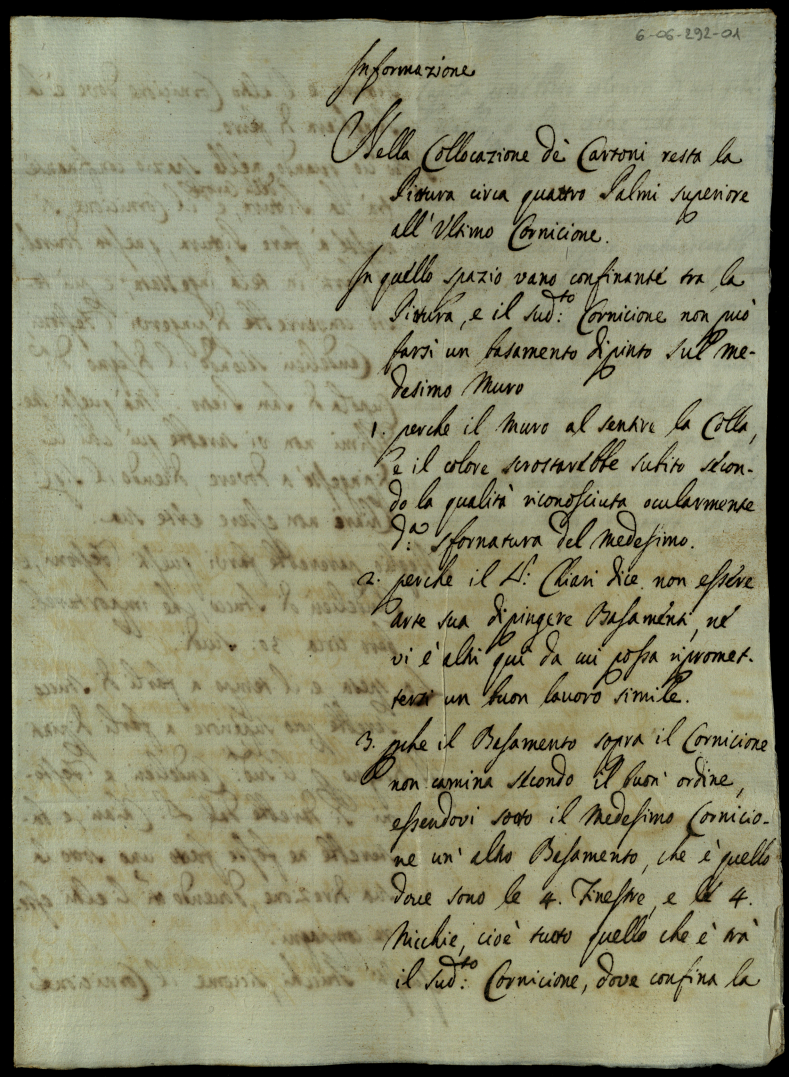 6-06-292-01
Informazione
Nella Collocazione de' Cartoni resta la
Pittura circa quattro Palmi superiore
all'Ultimo Cornicione.
In quello spazio vano confinante tra la
Pittura, e il sud:to Cornicione non può
farsi un basamento dipinto sul me-
desimo Muro
1. perche il Muro al sentire la Colla,
e il colore scrostarebbe subito secon-
do la qualità riconosciuta ocularmente
d:a sfornatura del medesimo.
2. perche il S.r Chiari dice non essere
arte sua dipingere Basamenti, né
vi è altri qui da cui possa ripromet-
tersi un buon lavoro simile.
3. perche il Basamento sopra il Cornicione
non camina secondo il buon ordine,
essendovi sotto il medesimo Cornicio-
ne un'altro Basamento, che è quello
dove sono le 4. Finestre, e le 4.
Nicchie, cioè tutto quello che è trà
il sud:to Cornicione, dove confina la